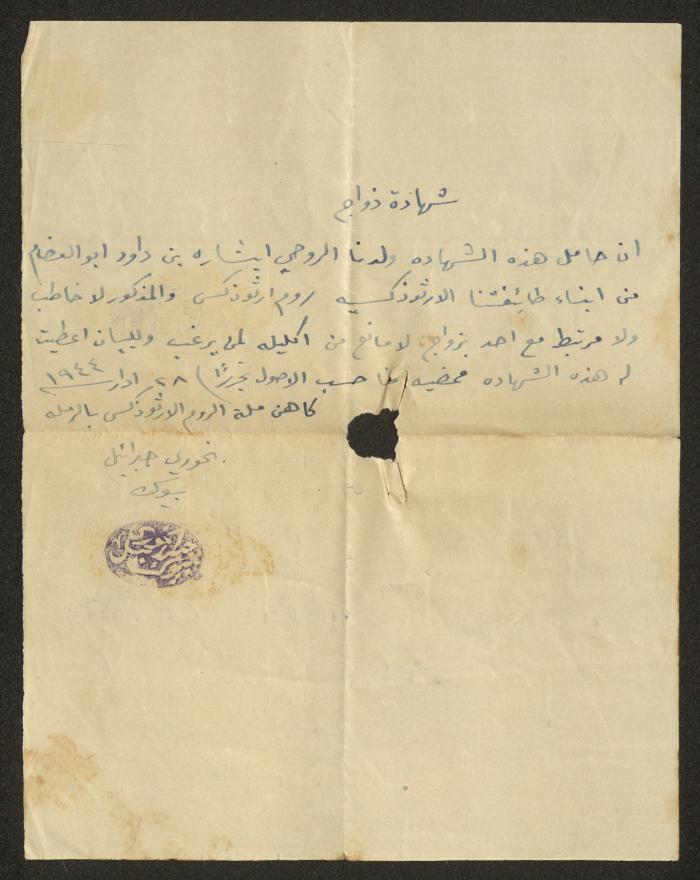 شهادة ذواج
ان حامل هذه الشهاده ولدنا الروحي ابشاره بن داود ابو العضام
من ابناء طائفتنا الارثوذكسيه روم ارثوذكس والمذكور لا خاطب
ولا مرتبط مع احد بزواج لا مانع من اكليله لمن يرغب وللبيان اعطيت
له هذه الشهاده ممضيه منا حسب الاصول تحريرًا ٢٨ ادار سنة ١٩٤٤
كاهن ملة الروم الارثوذكس بالرمله
الخوري جبرائيل